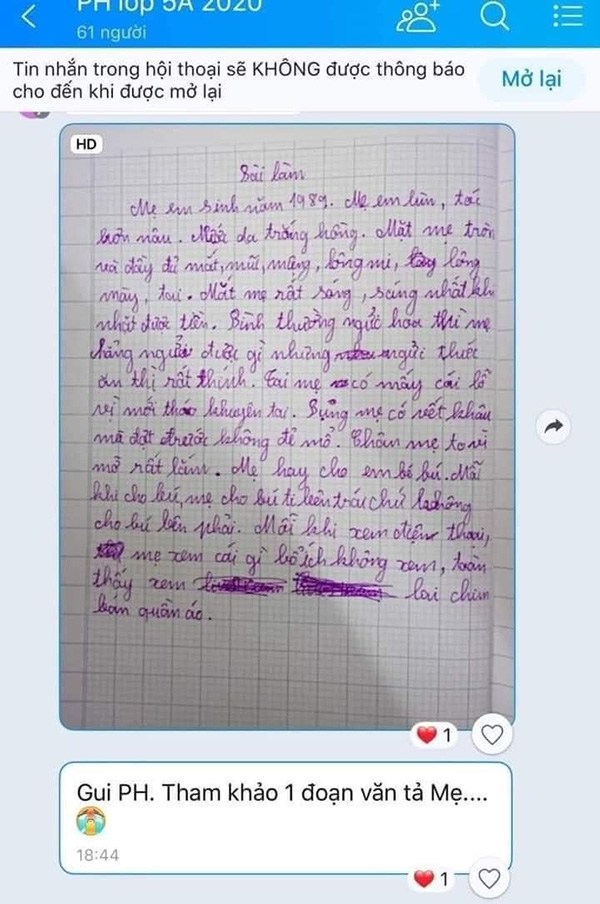 PH lớp 5A 2020
61 người
Tin nhắn trong hội thoại sẽ KHÔNG được thông báo
cho đến khi được mở lại
Mở lại
HD
Bài làm
Mẹ em sinh năm 1989. Mẹ em lùn, tóc
màu. da trắng hồng. Mặt mẹ tròn
và đầy đủ mắt, mũi, mồm, lông mi, lông
mày, tai. Mắt mẹ rất sáng, sáng nhất khi
nhặt được tiền. Bình thường ngửi hoa thì mẹ
chẳng ngửi được gì nhưng ngửi thức
ăn thì rất thính. Tai mẹ có mấy cái lỗ
vì mới tháo khuyên tai. Bụng mẹ có vết khâu
mà đợt trước không đẻ mổ. Chân mẹ to vì
mỡ rất lắm. Mẹ hay cho em bé bú. Mỗi
khi cho bú, mẹ cho bú ti bên trái chứ không
cho bú bên phải. Mỗi khi xem điện thoại,
mẹ xem cái gì bổ ích không xem, toàn
thấy xem lai chim
bán quần áo.
1
Gui PH. Tham khảo 1 đoạn văn tả Mẹ....
18:44
1